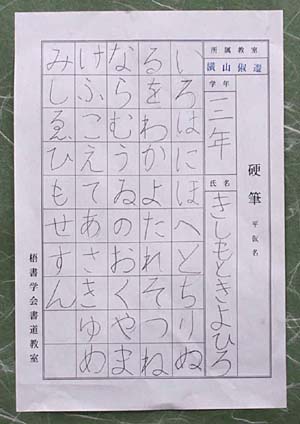 硬筆 平仮名
所属教室
学年
三年
氏名
きしもときよひろ
いろはにほへとちりぬ
るをわかよたれそつね
ならむうゐのおくやま
けふこえてあさきゆめ
みしゑひもせすん
梧書学会書道教室